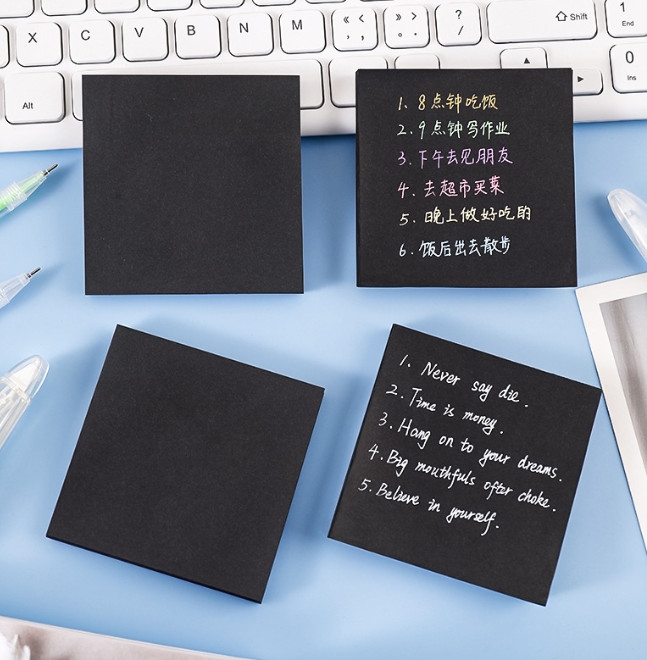 X
C
V
B
N
M
« 《
, ,
» 》
. 。
?
/
Shift
1
End
Alt
0
Ins
1、8点钟吃饭
2.9点钟写作业
3.下午去见朋友
4.去超市买菜
5.晚上做好吃的
6.饭后出去散步
1. Never say die.
2. Time is money.
3. Hang on to your dreams.
4. Big mouthfuls ofter choke.
5. Believe in yourself.